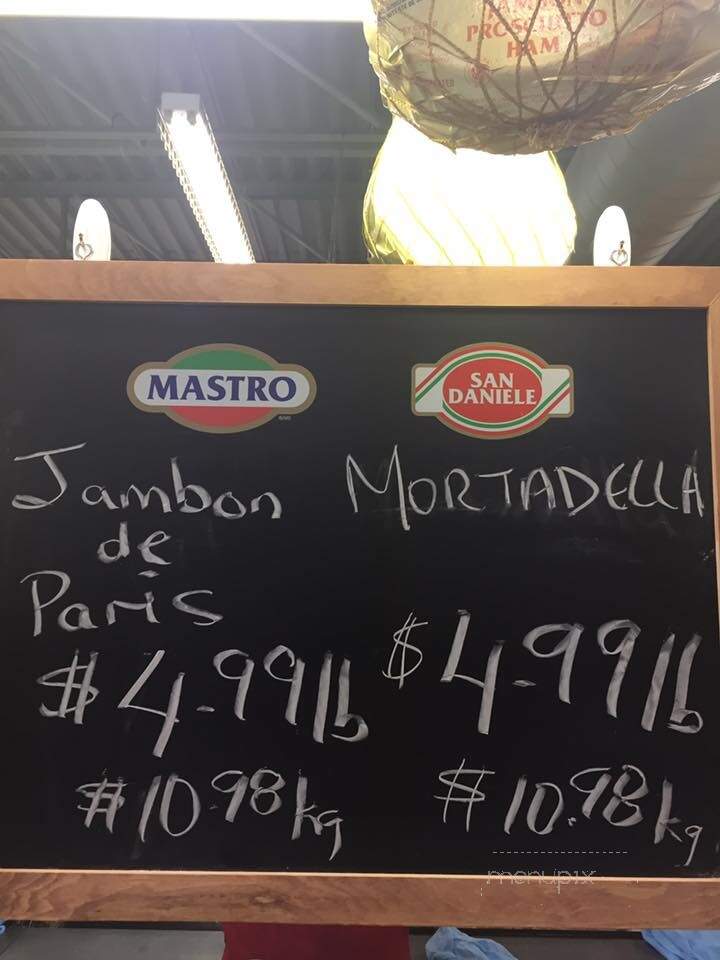 PROSCIUTTO
HAM
MASTRO
SAN
DANIELE
Jambon
de
Paris
$4.99 lb
$10.98 kg
MORTADELLA
$4.99 lb
$10.98 kg
menupix